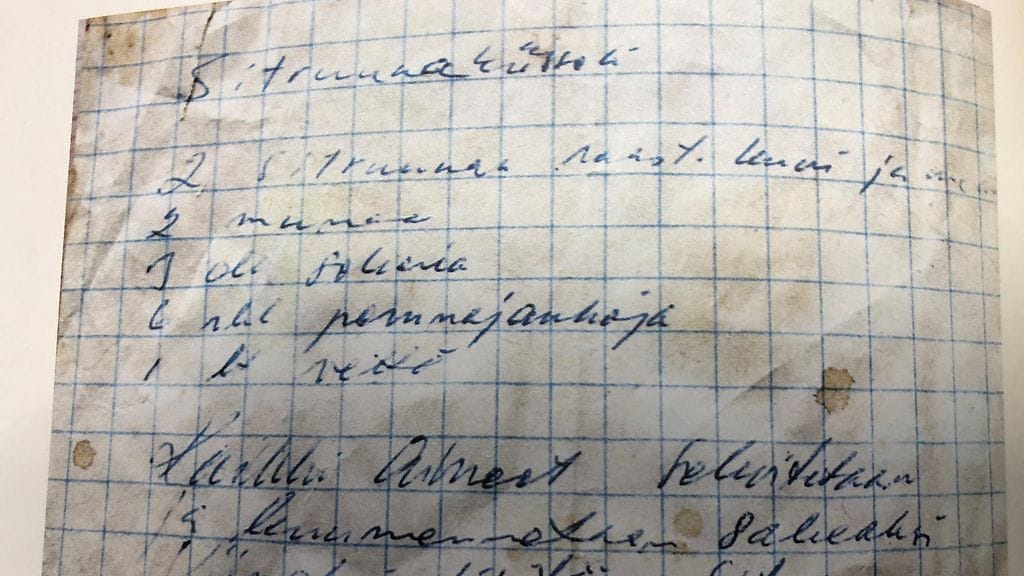 Sitruunakiisseli
2 sitruunaa raast. kuori ja
2 munaa
3 dl sokeria
6 rkl perunajauhoja
1 l vettä
Kaikki ainest sekoitetaan
ja kuumennetaan sakeaksi